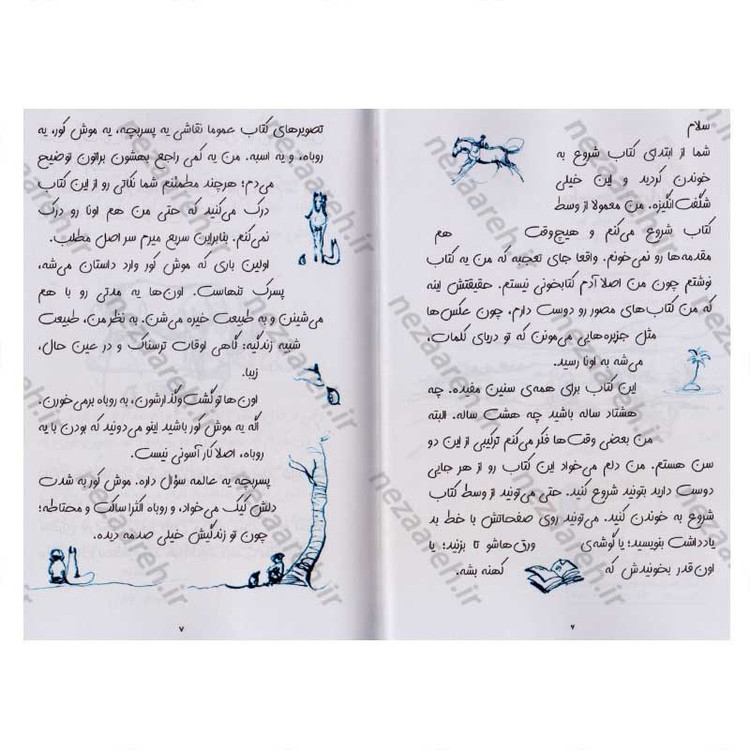 سلام
شما از ابتدای کتاب شروع به
خوندن کردید و این خیلی
شگفت‌انگیزه. من معمولا از وسط
کتاب شروع می‌کنم و هیچ‌وقت هم
مقدمه‌ها رو نمی‌خونم. واقعا جای تعجبه که من یه کتاب
نوشتم چون من اصلا آدم کتابخونی نیستم. حقیقتش اینه
که من کتاب‌های مصور رو دوست دارم، چون عکس‌ها
مثل جزیره‌هایی می‌مونن که تو دریای کلمات،
می‌شه به اونا رسید.
این کتاب برای همه‌ی سنین مفیده. چه
هشتاد ساله باشید چه هشت ساله. البته
من بعضی وقت‌ها فکر می‌کنم ترکیبی از این دو
سن هستم. من دلم می‌خواد این کتاب رو از هر جایی
دوست دارید بتونید شروع کنید. حتی می‌تونید از وسط کتاب
شروع به خوندن کنید. می‌تونید روی صفحاتش با خط بد
یادداشت بنویسید؛ یا گوشه‌ی ورق‌هاشو تا بزنید؛ یا
اون‌قدر بخونیدش که کهنه بشه.
۶
تصویرهای کتاب عموما نقاشی یه پسربچه، یه موش کور، یه
روباه، و یه اسبه. من یه کمی راجع بهشون براتون توضیح
می‌دم؛ هرچند مطمئنم شما نکاتی رو از این کتاب
درک می‌کنید که حتی من هم اونا رو درک
نمی‌کنم. بنابراین سریع میرم سر اصل مطلب.
اولین باری که موش کور وارد داستان می‌شه،
پسرک تنهاست. اون‌ها یه مدتی رو با هم
می‌شینن و به طبیعت خیره می‌شن. به نظر من، طبیعت
شبیه زندگیه: گاهی اوقات ترسناک و در عین حال،
زیبا.
اون‌ها تو گشت‌وگذارشون، به روباه برمی‌خورن.
اگه یه موش کور باشید اینو می‌دونید که بودن با یه
روباه، اصلا کار آسونی نیست.
پسربچه یه عالمه سؤال داره. موش کور به شدت
دلش کیک می‌خواد، و روباه اکثرا ساکت و محتاطه؛
چون تو زندگیش خیلی صدمه دیده.
۷
nezaareh.ir